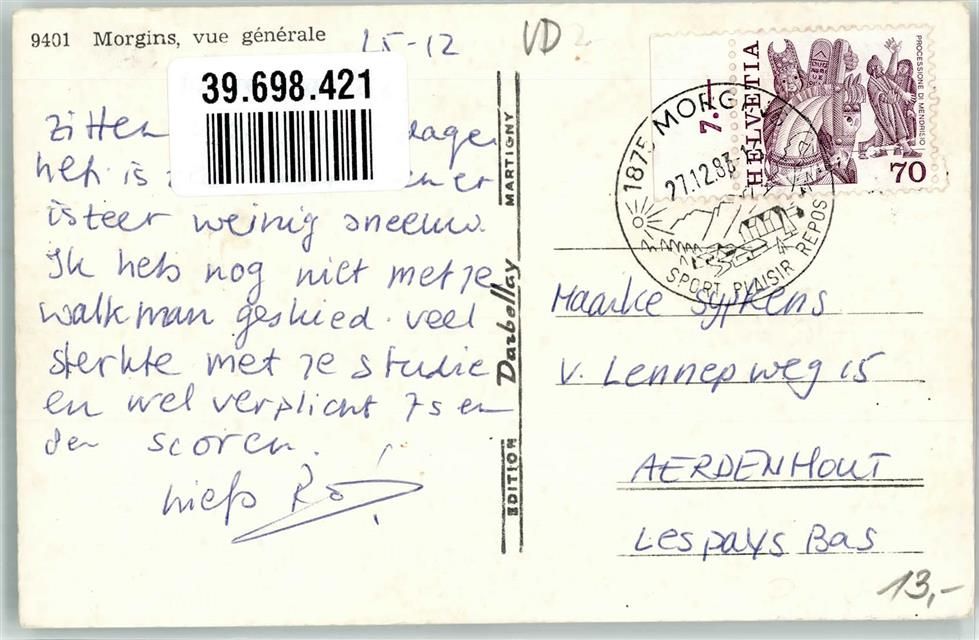 9401 Morgins, vue générale
25-12
VD
39.698.421
zitten
dage
heb is
er
is teer weinig sneeuw.
Ik heb nog niet met je
walkman geskied. veel
sterkte met je studie
en wel verplicht 7s en
8en scoren.
liefs Ro
EDITION Darbellay MARTIGNY
7.-
HELVETIA
PROCESSIONE DI MENDRISIO
70
1875 MORG
27.12.83
SPORT PLAISIR REPOS
Maaike Sypkens
v. Lennepweg 15
AERDENHOUT
Les pays Bas
13,-